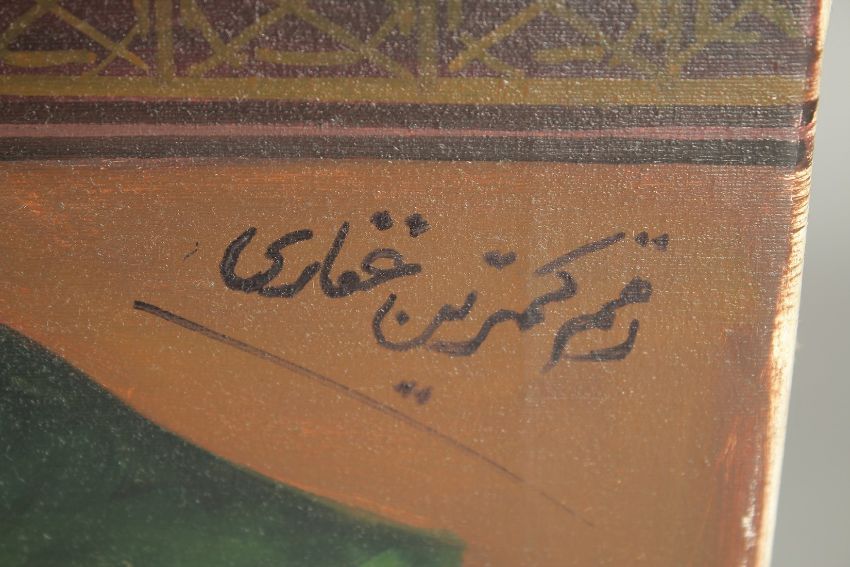 رقم کمترین غفاری